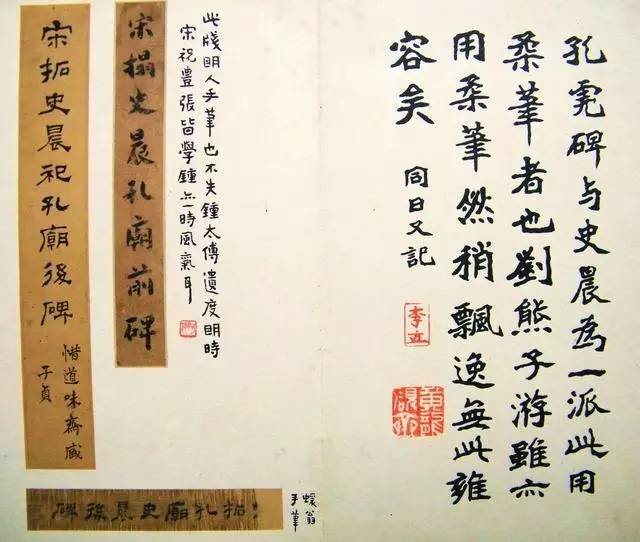 孔碑与史晨為一派此用
柔筆者也劉熊子游雖亦
用柔筆然稍飄逸無此雍
容矣
同日又記
此牋明人手筆也不失鍾太傅遺度明時
宋祝豊張皆學鍾亦一時風氣耳
宋搨史晨孔廟前碑
宋拓史晨祀孔廟後碑
惜道味齋藏
子貞
拓孔廟史晨後碑
蝯翁
手筆